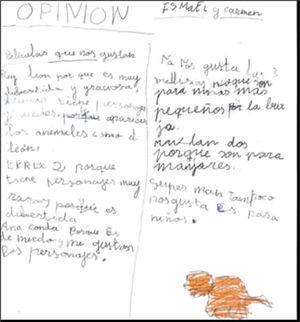 OPINION
ISMAEL y carmen
Peliculas que nos gustan
Rey león por que es muy
divertida y graciosa,
tiene personajes
porque aparece
los animeles como el
león.
2 porque
tiene personajes muy
raros porque es
divertida
Ana conda Porque Es
de miedo y me gustan
los personajes.
No nos gusta las 3
mellisas porque son
para niñas mas
pequeños por la
dos
porque son para
mallores.
super man tampoco
nos gusta es para
niños.